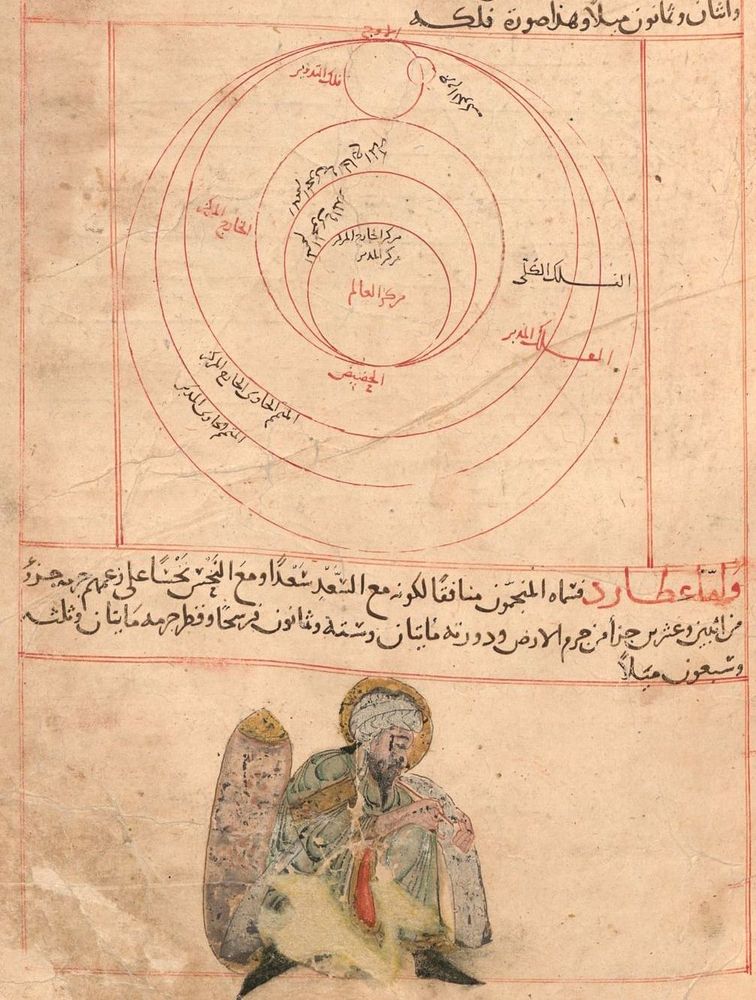 واثنان وثمانون ميلا وهذا صورة فلكه
الاوج
فلك التدوير
الخارج المركز
مركز الخارج المركز
مركز المدير
مركز العالم
الفلك الكلي
الفلك المدير
الحضيض
المتمم الحاوي الخارج المركز
المتمم الحاوي المدير
وامّا عطارد فسماه المنجمون منافقًا لكونه مع السَّعْدِ سَعْدًا ومع النَحْسِ نَحْسًا على زعمهم جرمه جزءٌ
من اثنين وعشرين جزأ من جرم الارض ودورته مايتان وستة وثمانون فرسخًا وقطر جرمه مايتان وثلثه
وسبعون ميلاً